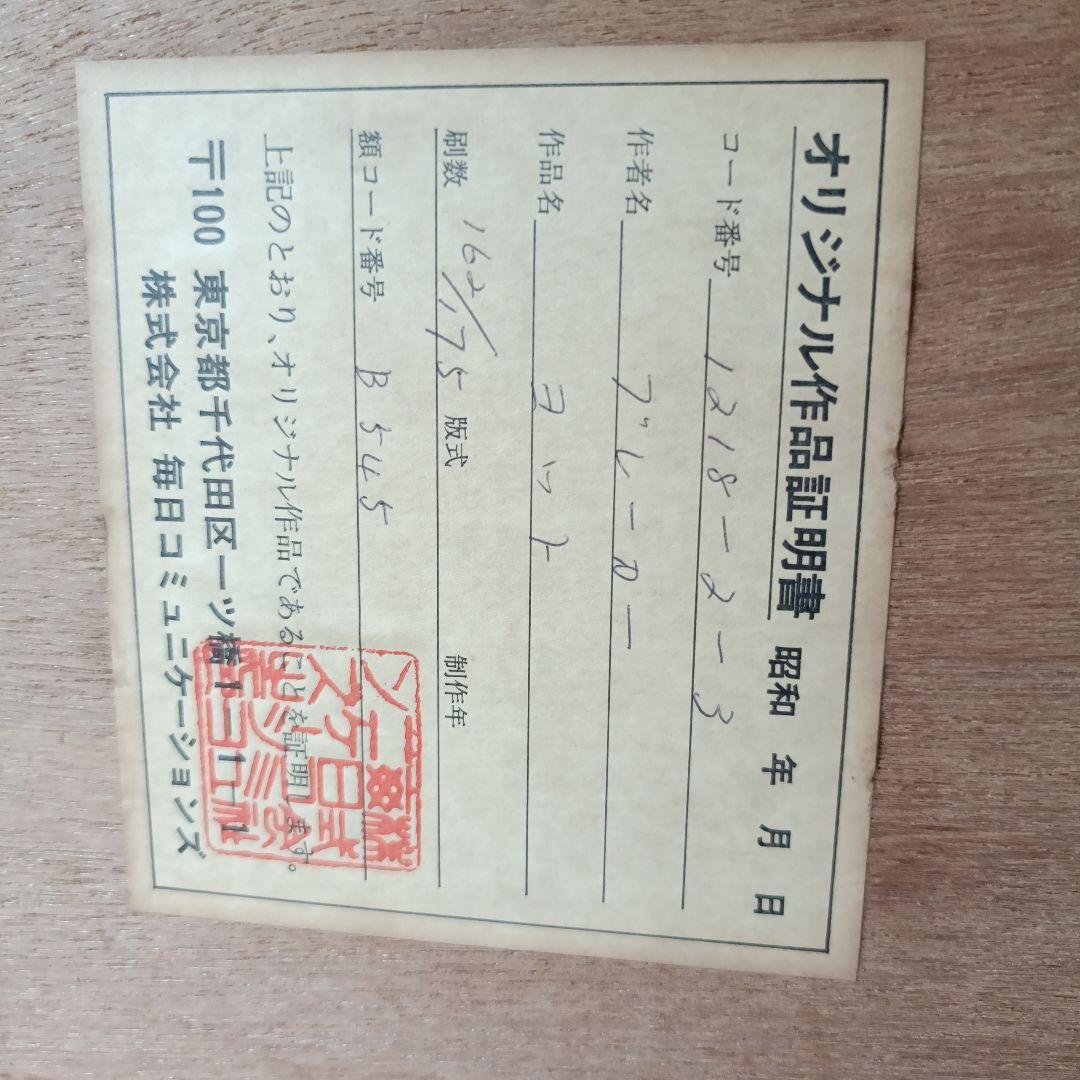 オリジナル作品証明書 昭和 年 月 日
コード番号 1218-2-3
作者名 ブレーカー
作品名 ヨット
刷数 162/175 版式 制作年
額コード番号 B545
上記のとおり、オリジナル作品であることを証明します。
〒100 東京都千代田区一ツ橋1-1-1
株式会社 毎日コミュニケーションズ